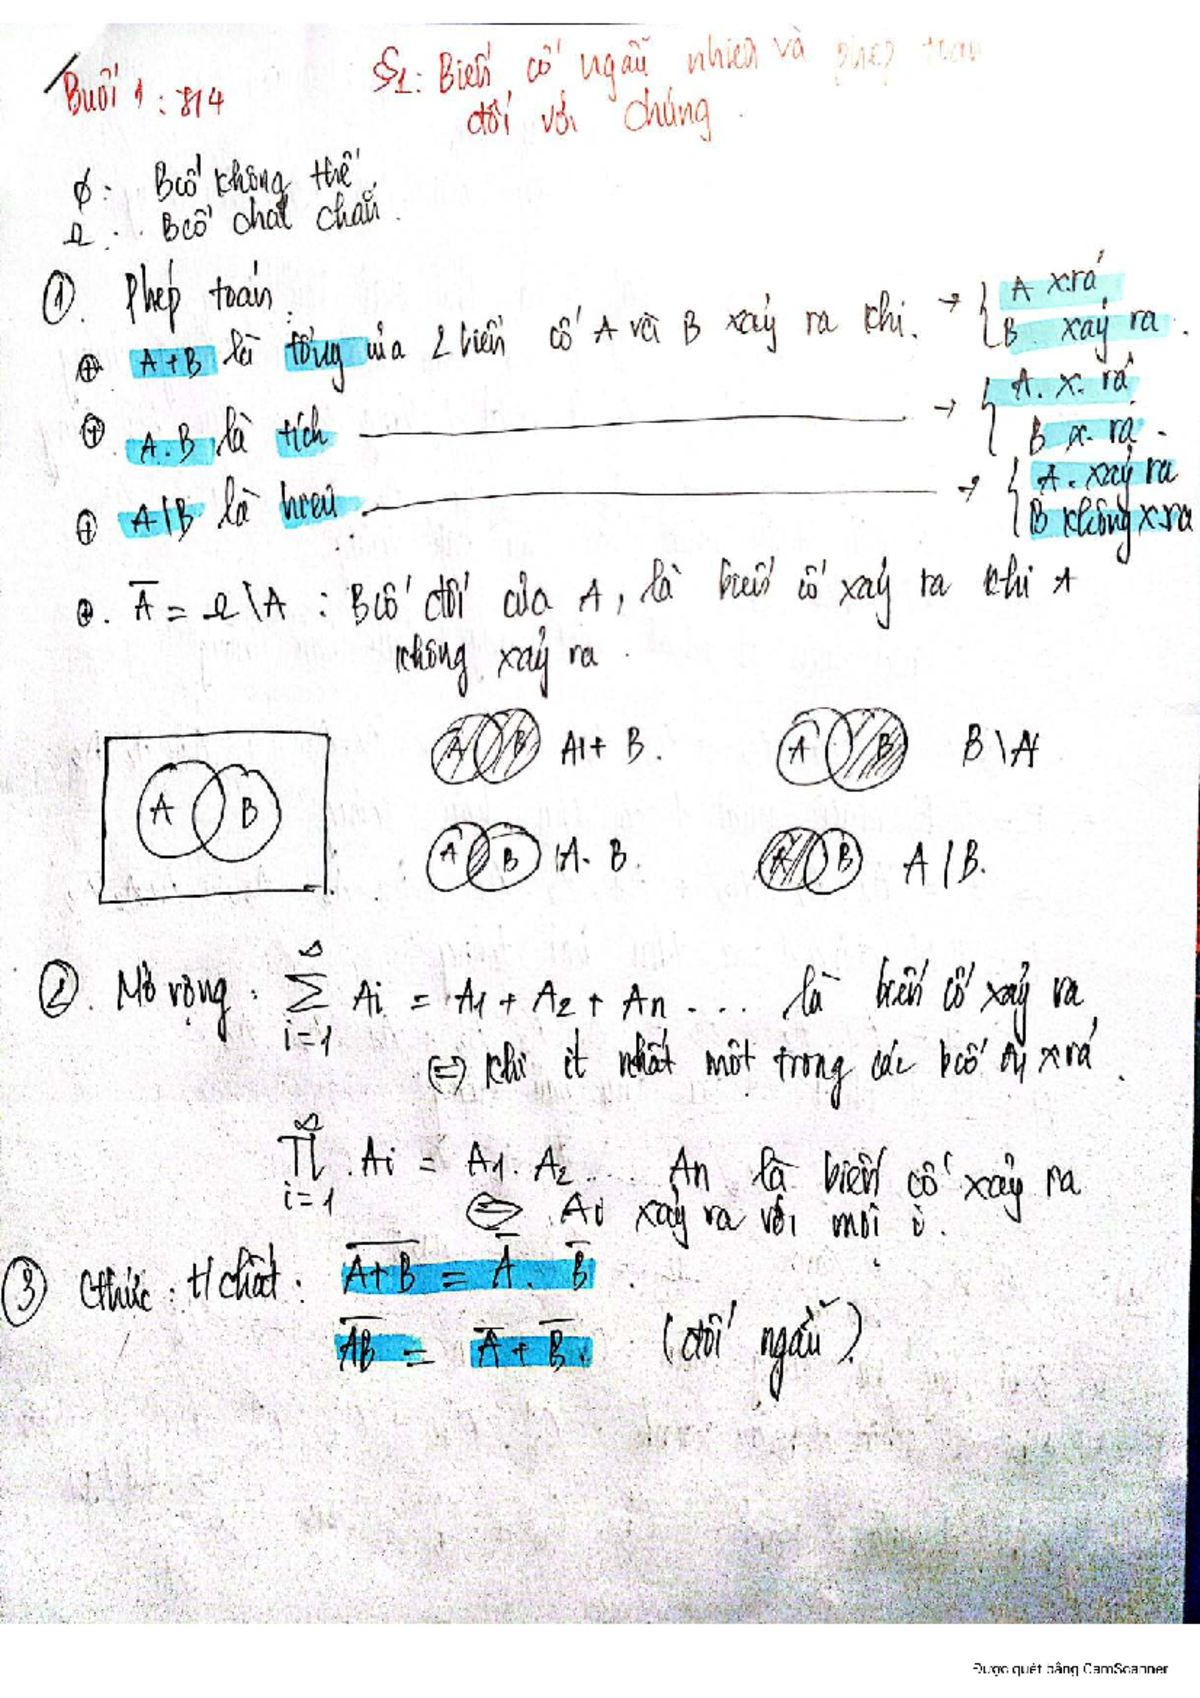 Buổi 1 : 8/4
§1: Biến cố ngẫu nhiên và phép toán
đối với chúng.
∅: Bcố không thể
Ω: Bcố chắc chắn.
① Phép toán:
⊕ A+B là tổng của 2 biến cố A và B xảy ra khi. → { A x.rả
B xảy ra.
⊕ A.B là tích → { A. x. rả
B x. rả.
⊕ A\B là hiệu → { A. xảy ra
B không x.ra
⊕. A̅ = Ω \ A : Bcố đối của A, là biến cố xảy ra khi A
không xảy ra.
A B
A B A+ B.
A B B \ A
A B A. B.
A B A \ B.
②. Mở rộng: ∑_{i=1}^{∞} Ai = A1 + A2 + An .... là biến cố xảy ra
(=) khi ít nhất một trong các bcố Ai x rả.
∏_{i=1}^{∞} .Ai = A1. A2 .... An là biến cố xảy ra
⇔ Ai xảy ra với mỗi i.
③ Cthức: t/chất: \overline{A+B} = A̅. B̅.
\overline{AB} = A̅ + B̅. (đối ngẫu).
Được quét bằng CamScanner